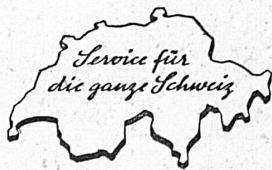 Service für
die ganze Schweiz